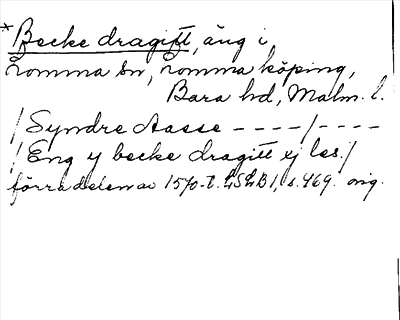 *Becke dragitt, äng i
Lomma sn, Lomma köping,
Bara hd, Malm. l.
/Syndre Aasse ----/----
/Eng y becke dragitt ej les./
förra delen av 1570-t. LSLB I, s. 469. orig.